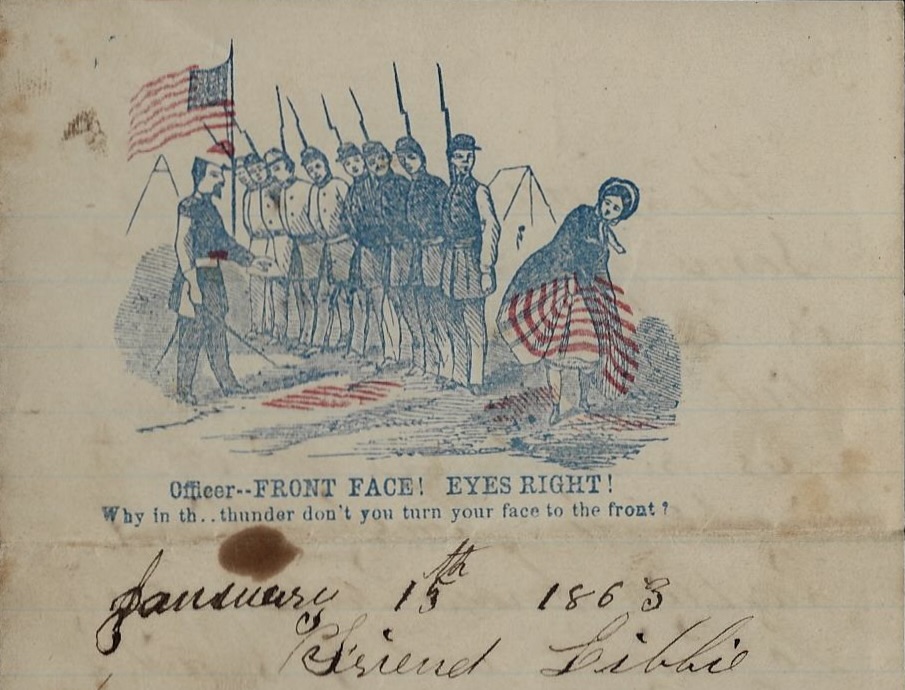 Officer--FRONT FACE! EYES RIGHT!
Why in th..thunder don't you turn your face to the front?
January 15th 1863
Friend Libbie